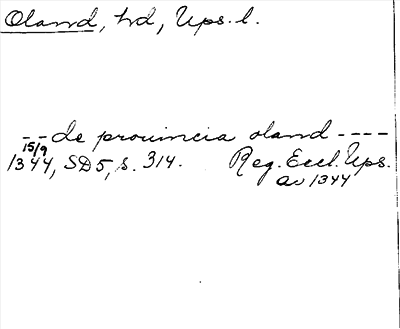 Oland, hd, Ups. l.
-- de prouincia oland ----
15/9
1344, SD5, s. 314. Reg. Eccl. Ups.
av 1344